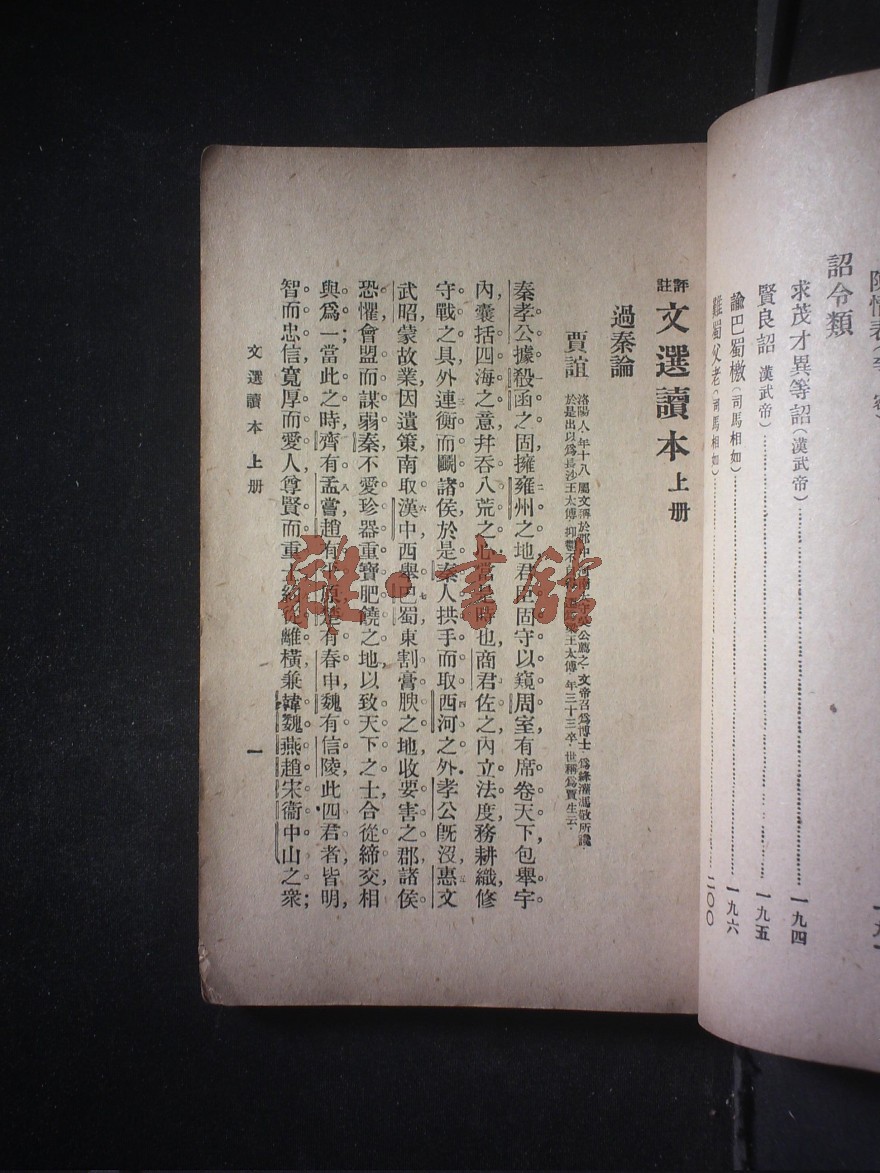 詔令類
求茂才異等詔(漢武帝)……一九四
賢良詔 漢武帝)……一九五
諭巴蜀檄(司馬相如)……一九六
難蜀父老(司馬相如)……二〇〇
評註 文選讀本 上册
過秦論
賈誼
洛陽人年十八屬文稱於郡中公薦之文帝召爲博士爲絳灌馮敬所讒
於是出以爲長沙王太傅抑鬱不王太傅年三十三卒世稱爲賈生云
秦孝公據殽函之固擁雍州之地君臣固守以窺周室有席卷天下包舉宇
內囊括四海之意幷吞八荒之心當是時也商君佐之內立法度務耕織修
守戰之具外連衡而鬭諸侯於是秦人拱手而取西河之外孝公旣沒惠文
武昭蒙故業因遺策南取漢中西舉巴蜀東割膏腴之地收要害之郡諸侯
恐懼會盟而謀弱秦不愛珍器重寶肥饒之地以致天下之士合從締交相
與爲一當此之時齊有孟嘗趙有平原楚有春申魏有信陵此四君者皆明
智而忠信寬厚而愛人尊賢而重士約從離橫兼韓魏燕趙宋衞中山之衆
文選讀本 上册
一
雜·書館